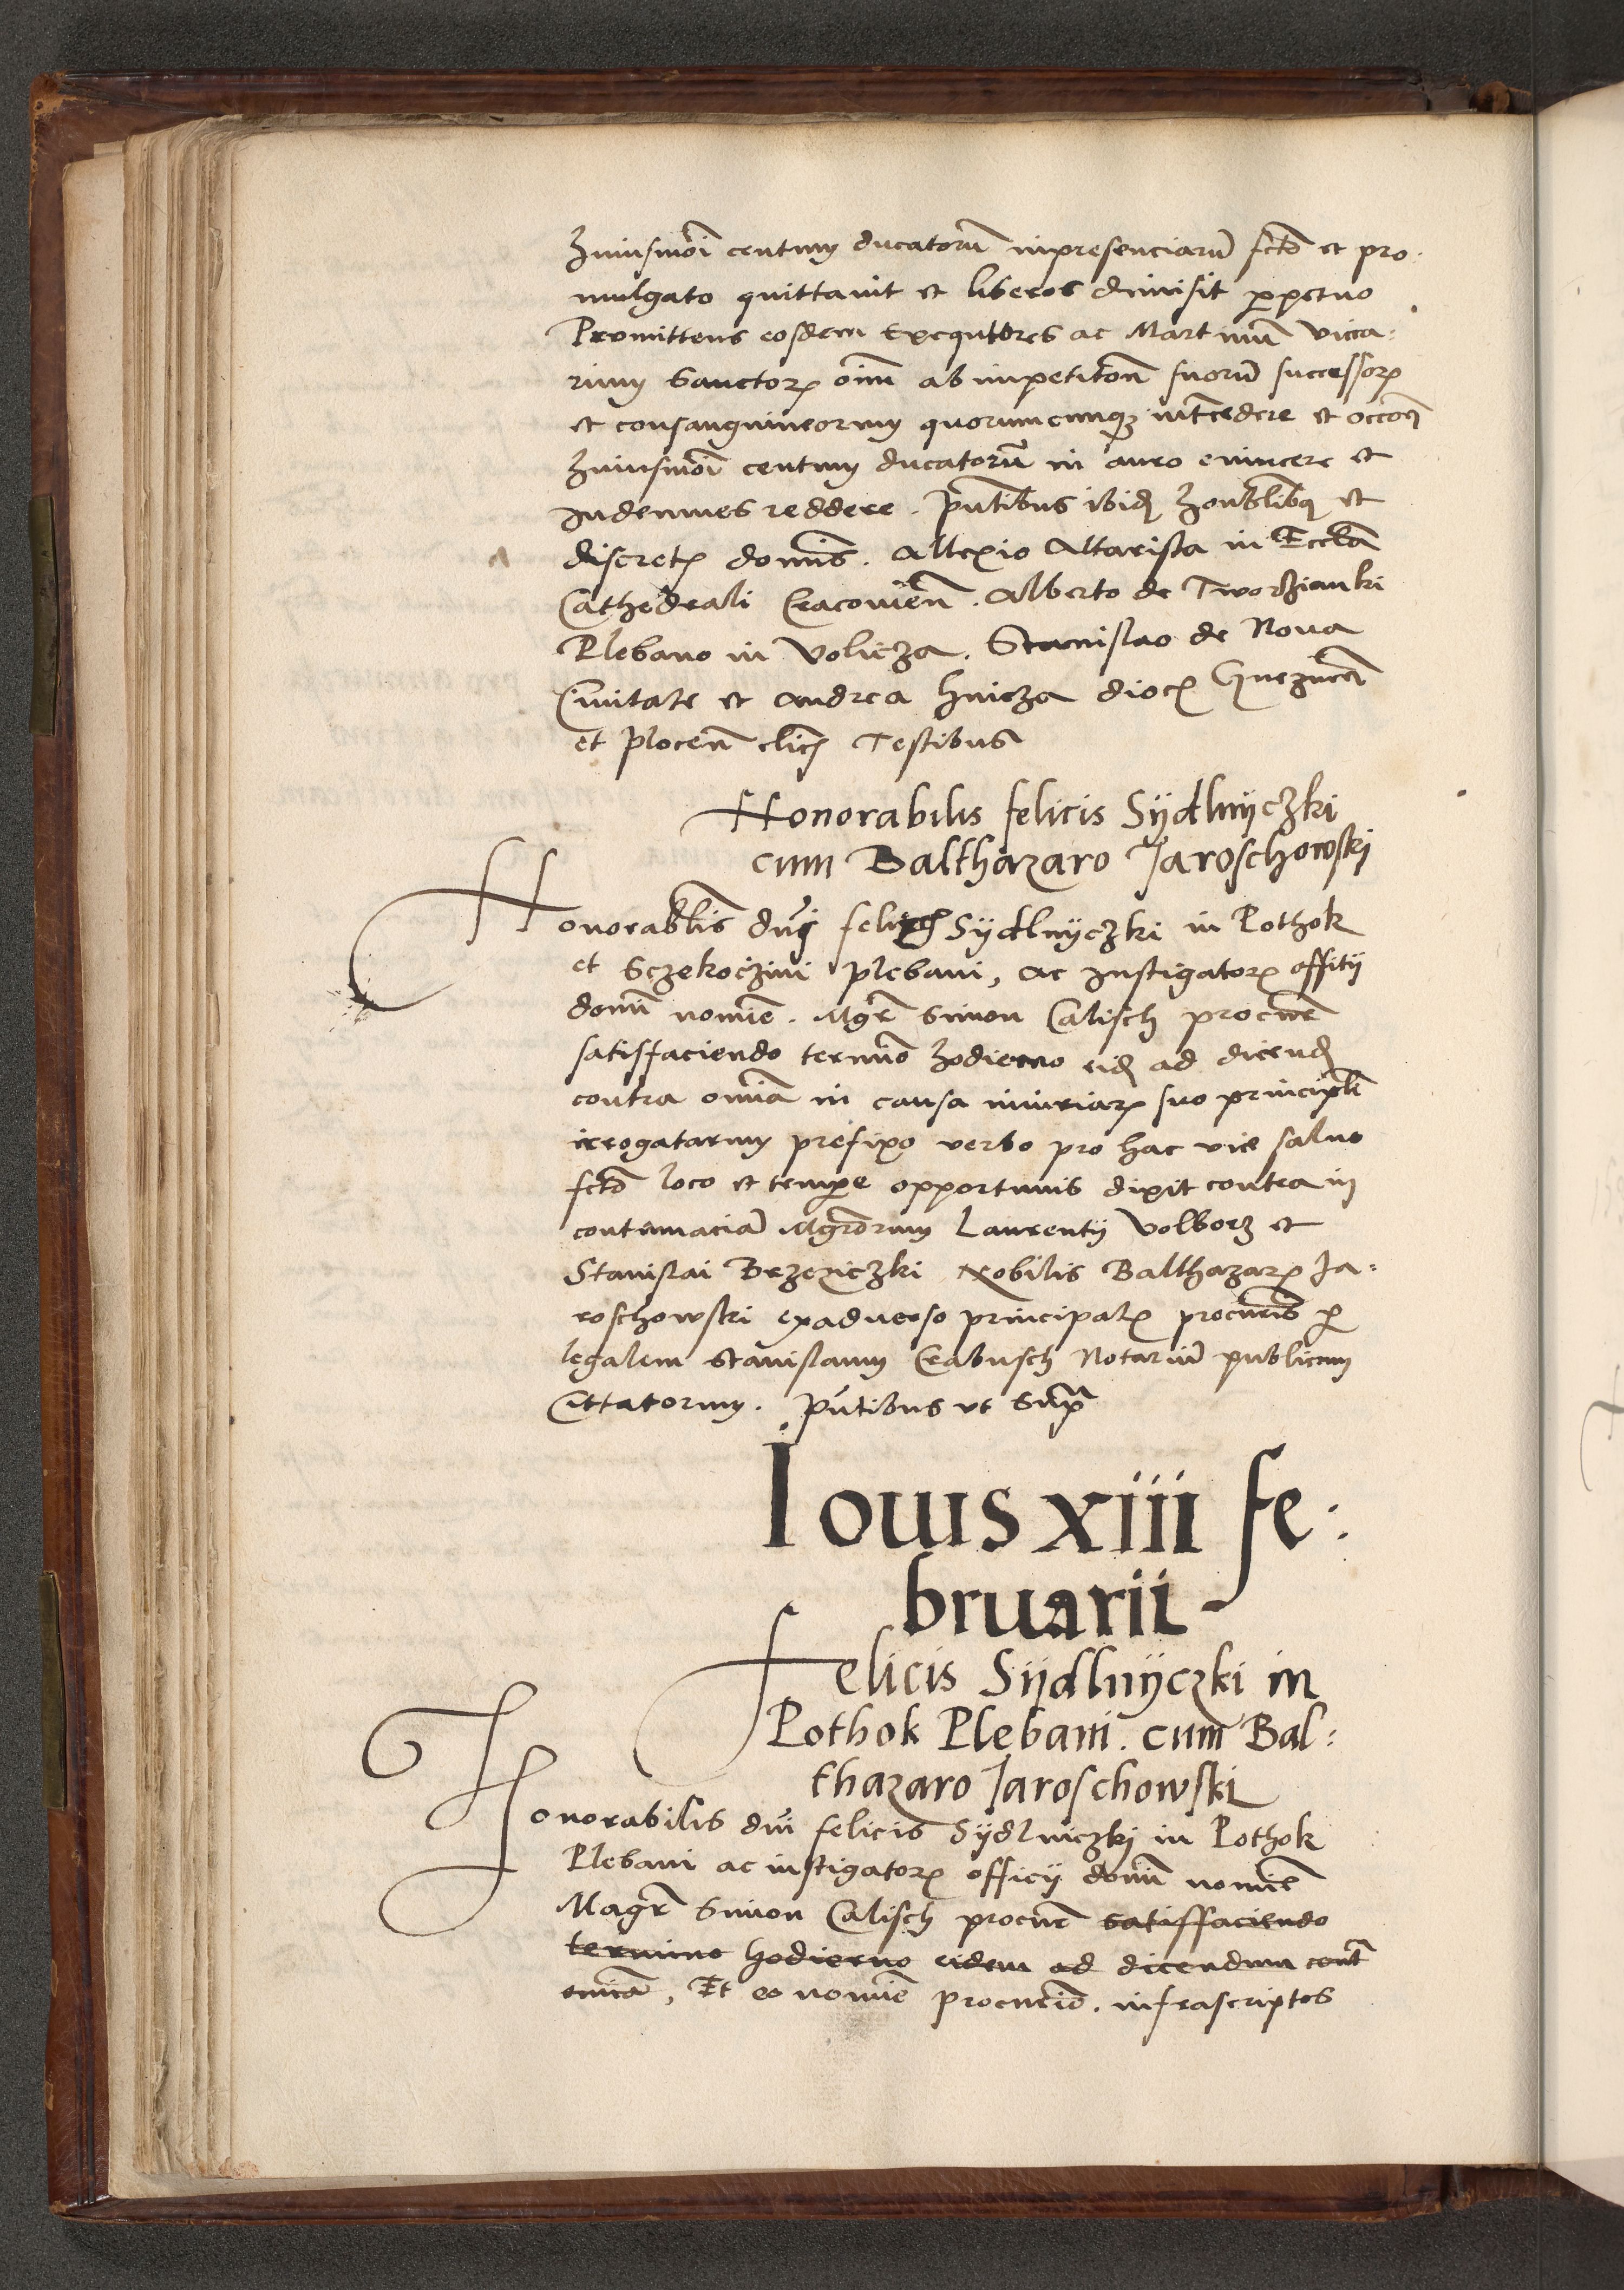 huiusmoi centum ducatorũ inpresenciarũ fcto et pro.
mulgato quittauit et liberos dimisit ppetuo
Promittens eosdem Exequtores ac Martinũ vicca:
rium Sanctorꝫ oim ab impetitone suorũ successorꝫ
et consanguineorum quorumcunqꝫ intcedere et occoe
huiusmoi centum ducatorũ in auro euincere et
Indemnes reddere. pntibus ibidꝫ honoblibꝫ et
discretꝫ domis. Allexio Altarista in Eccla
Cathedrali Cracouien. Alberto de Tworzianki
Plebano in Volicza. Stanislao de Noua
Ciuitate et Andrea Hnicza diocꝫ Gneznen
et plocen clicꝫ Testibus
Honorabilis felicis Sÿdlnÿczki
cum Balthazaro Jaroschowski
Honorablis dni felicis Sÿdlnÿczki in Pothok
et Sczekoczini plebani, ac Instigatorꝫ offitii
domi nomie. Mgr Simon Calisch procur
satisfaciendo termio hodierno eidꝫ ad dicendꝫ
contra omia in causa iniuriarꝫ suo principli
irrogatarum prefixo verbo pro hac vice saluo
fcto loco et tempe opportunis dixit contra in
contumaciã Mgrorum Laurentij Volborz et
Stanislai Brzeziczki Nobilis Balthazarꝫ Ja:
roschowski exaduerso principalꝫ procuris p
legalem Stanislaum Crabusch Notariũ publicum
Cittatorum. pntibus vt supra
Iouis xiii fe:
bruarii
Felicis Sÿdlnÿczki in
Pothok Plebani. cum Bal:
thazaro Jaroschowski
Honorabilis dni felicis Sÿdlniczki in Pothok
Plebani ac instigatorꝫ officij domi nomie
Magr Simon Calisch procur satisffaciendo
termino hodierno eidem ad dicendum cont
omia, Et eo nomie procurio. infrascriptos